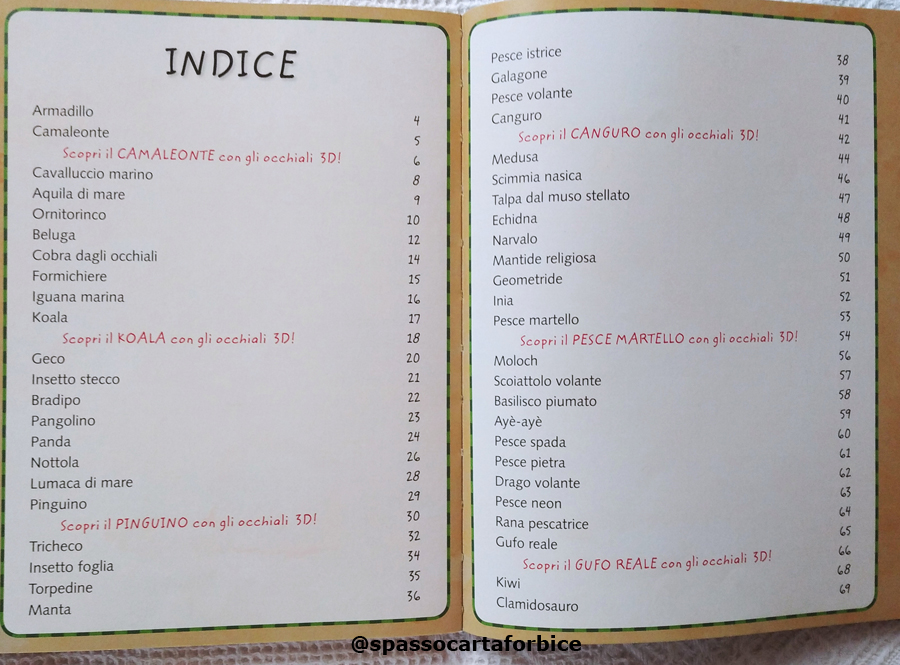 INDICE
Armadillo 4
Camaleonte 5
Scopri il CAMALEONTE con gli occhiali 3D! 6
Cavalluccio marino 8
Aquila di mare 9
Ornitorinco 10
Beluga 12
Cobra dagli occhiali 14
Formichiere 15
Iguana marina 16
Koala 17
Scopri il KOALA con gli occhiali 3D! 18
Geco 20
Insetto stecco 21
Bradipo 22
Pangolino 23
Panda 24
Nottola 26
Lumaca di mare 28
Pinguino 29
Scopri il PINGUINO con gli occhiali 3D! 30
Tricheco 32
Insetto foglia 34
Torpedine 35
Manta 36
Pesce istrice 38
Galagone 39
Pesce volante 40
Canguro 41
Scopri il CANGURO con gli occhiali 3D! 42
Medusa 44
Scimmia nasica 46
Talpa dal muso stellato 47
Echidna 48
Narvalo 49
Mantide religiosa 50
Geometride 51
Inia 52
Pesce martello 53
Scopri il PESCE MARTELLO con gli occhiali 3D! 54
Moloch 56
Scoiattolo volante 57
Basilisco piumato 58
Ayè-ayè 59
Pesce spada 60
Pesce pietra 61
Drago volante 62
Pesce neon 63
Rana pescatrice 64
Gufo reale 65
Scopri il GUFO REALE con gli occhiali 3D! 66
Kiwi 68
Clamidosauro 69
@spassocartaforbice